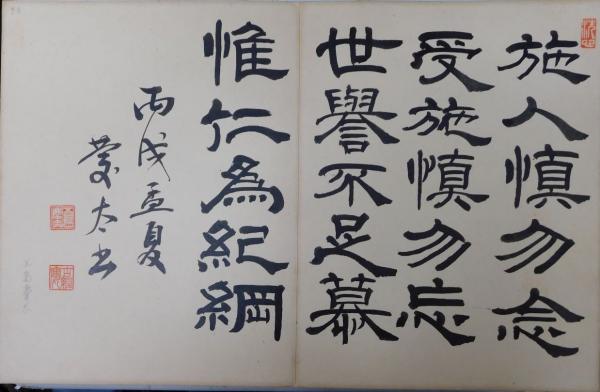 施人慎勿念
受施慎勿忘
世譽不足慕
惟仁為紀綱
丙戌孟夏
蒙太書